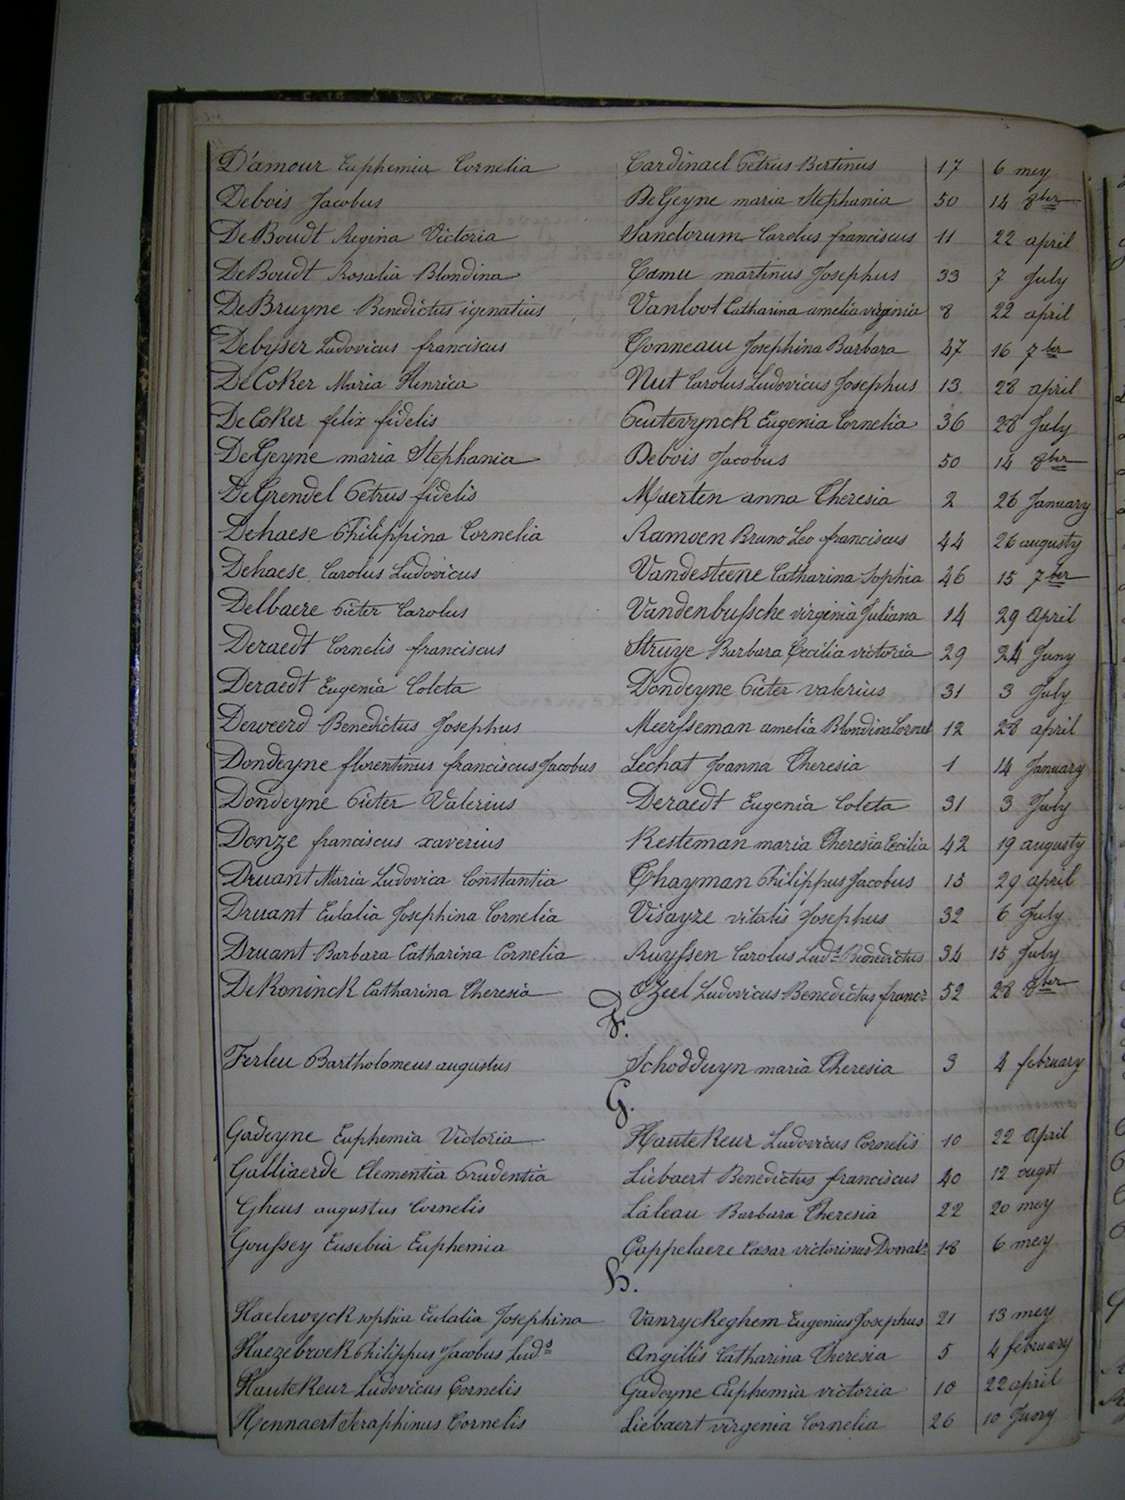 D'amour Euphemia Cornelia Cardinael Petrus Bertinus 17 6 mey
Debois Jacobus DeGeyne maria Stephania 50 14 8ber
DeBoudt Regina Victoria Sanctorum Carolus franciscus 11 22 april
DeBoudt Rosalia Blondina Camu martinus Josephus 33 7 July
DeBruyne Benedictus igenatius Vanloot Catharina amelia virginia 8 22 april
Debyser Ludovicus franciscus Tonneau Josephina Barbara 47 16 7ber
DeCoker Maria Henrica Nut Carolus Ludovicus Josephus 13 28 april
DeCoker felix fidelis Peuterynck Eugenia Cornelia 36 28 July
DeGeyne maria Stephania Debois Jacobus 50 14 8ber
DeGrendel Petrus fidelis Maerten anna Theresia 2 26 January
Dehaese Philippina Cornelia Ramoen Bruno Leo franciscus 44 26 augusty
Dehaese Carolus Ludovicus Vandesteene Catharina Sophia 46 15 7ber
Delbaere Pieter Carolus Vandenbussche virginia Juliana 14 29 April
Deraedt Cornelis franciscus Struye Barbara Cecilia victoria 29 24 Juny
Deraedt Eugenia Coleta Dondeyne Pieter valerius 31 3 July
Deweerd Benedictus Josephus Meersseman amelia Blondina Cornel 12 28 april
Dondeyne florentinus franciscus Jacobus Lechat Joanna Theresia 1 14 January
Dondeyne Pieter Valerius Deraedt Eugenia Coleta 31 3 July
Donze franciscus xaverius Resteman maria Theresia Cecilia 42 19 augusty
Druant Maria Ludovica Constantia Thayman Philippus Jacobus 15 29 april
Druant Eulalia Josephina Cornelia Visayze vitalis Josephus 32 6 July
Druant Barbara Catharina Cornelia Ruyssen Carolus Luds Benedictus 34 15 July
DeKoninck Catharina Theresia OZeel Ludovicus Benedictus francs 52 28 8ber
F.
Ferleu Bartholomeus augustus Schodduyn maria Theresia 3 4 february
G.
Gadeyne Euphemia Victoria HauteKeur Ludovicus Cornelis 10 22 April
Galliaerde Clementia Prudentia Liebaert Benedictus franciscus 40 12 ougst
Gheus augustus Cornelis Laleau Barbara Theresia 22 20 mey
Goussey Eusebia Euphemia Cappelaere Cæsar victorinus Donats 18 6 mey
H.
Haelewyck sophia Eulalia Josephina VanrycKeghem Eugenius Josephus 21 13 mey
Haezebroek Philippus Jacobus Luds Angillis Catharina Theresia 5 4 february
HauteKeur Ludovicus Cornelis Gadeyne Euphemia victoria 10 22 april
Hennaert Seraphinus Cornelis Liebaert virgenia Cornelia 26 10 Juny